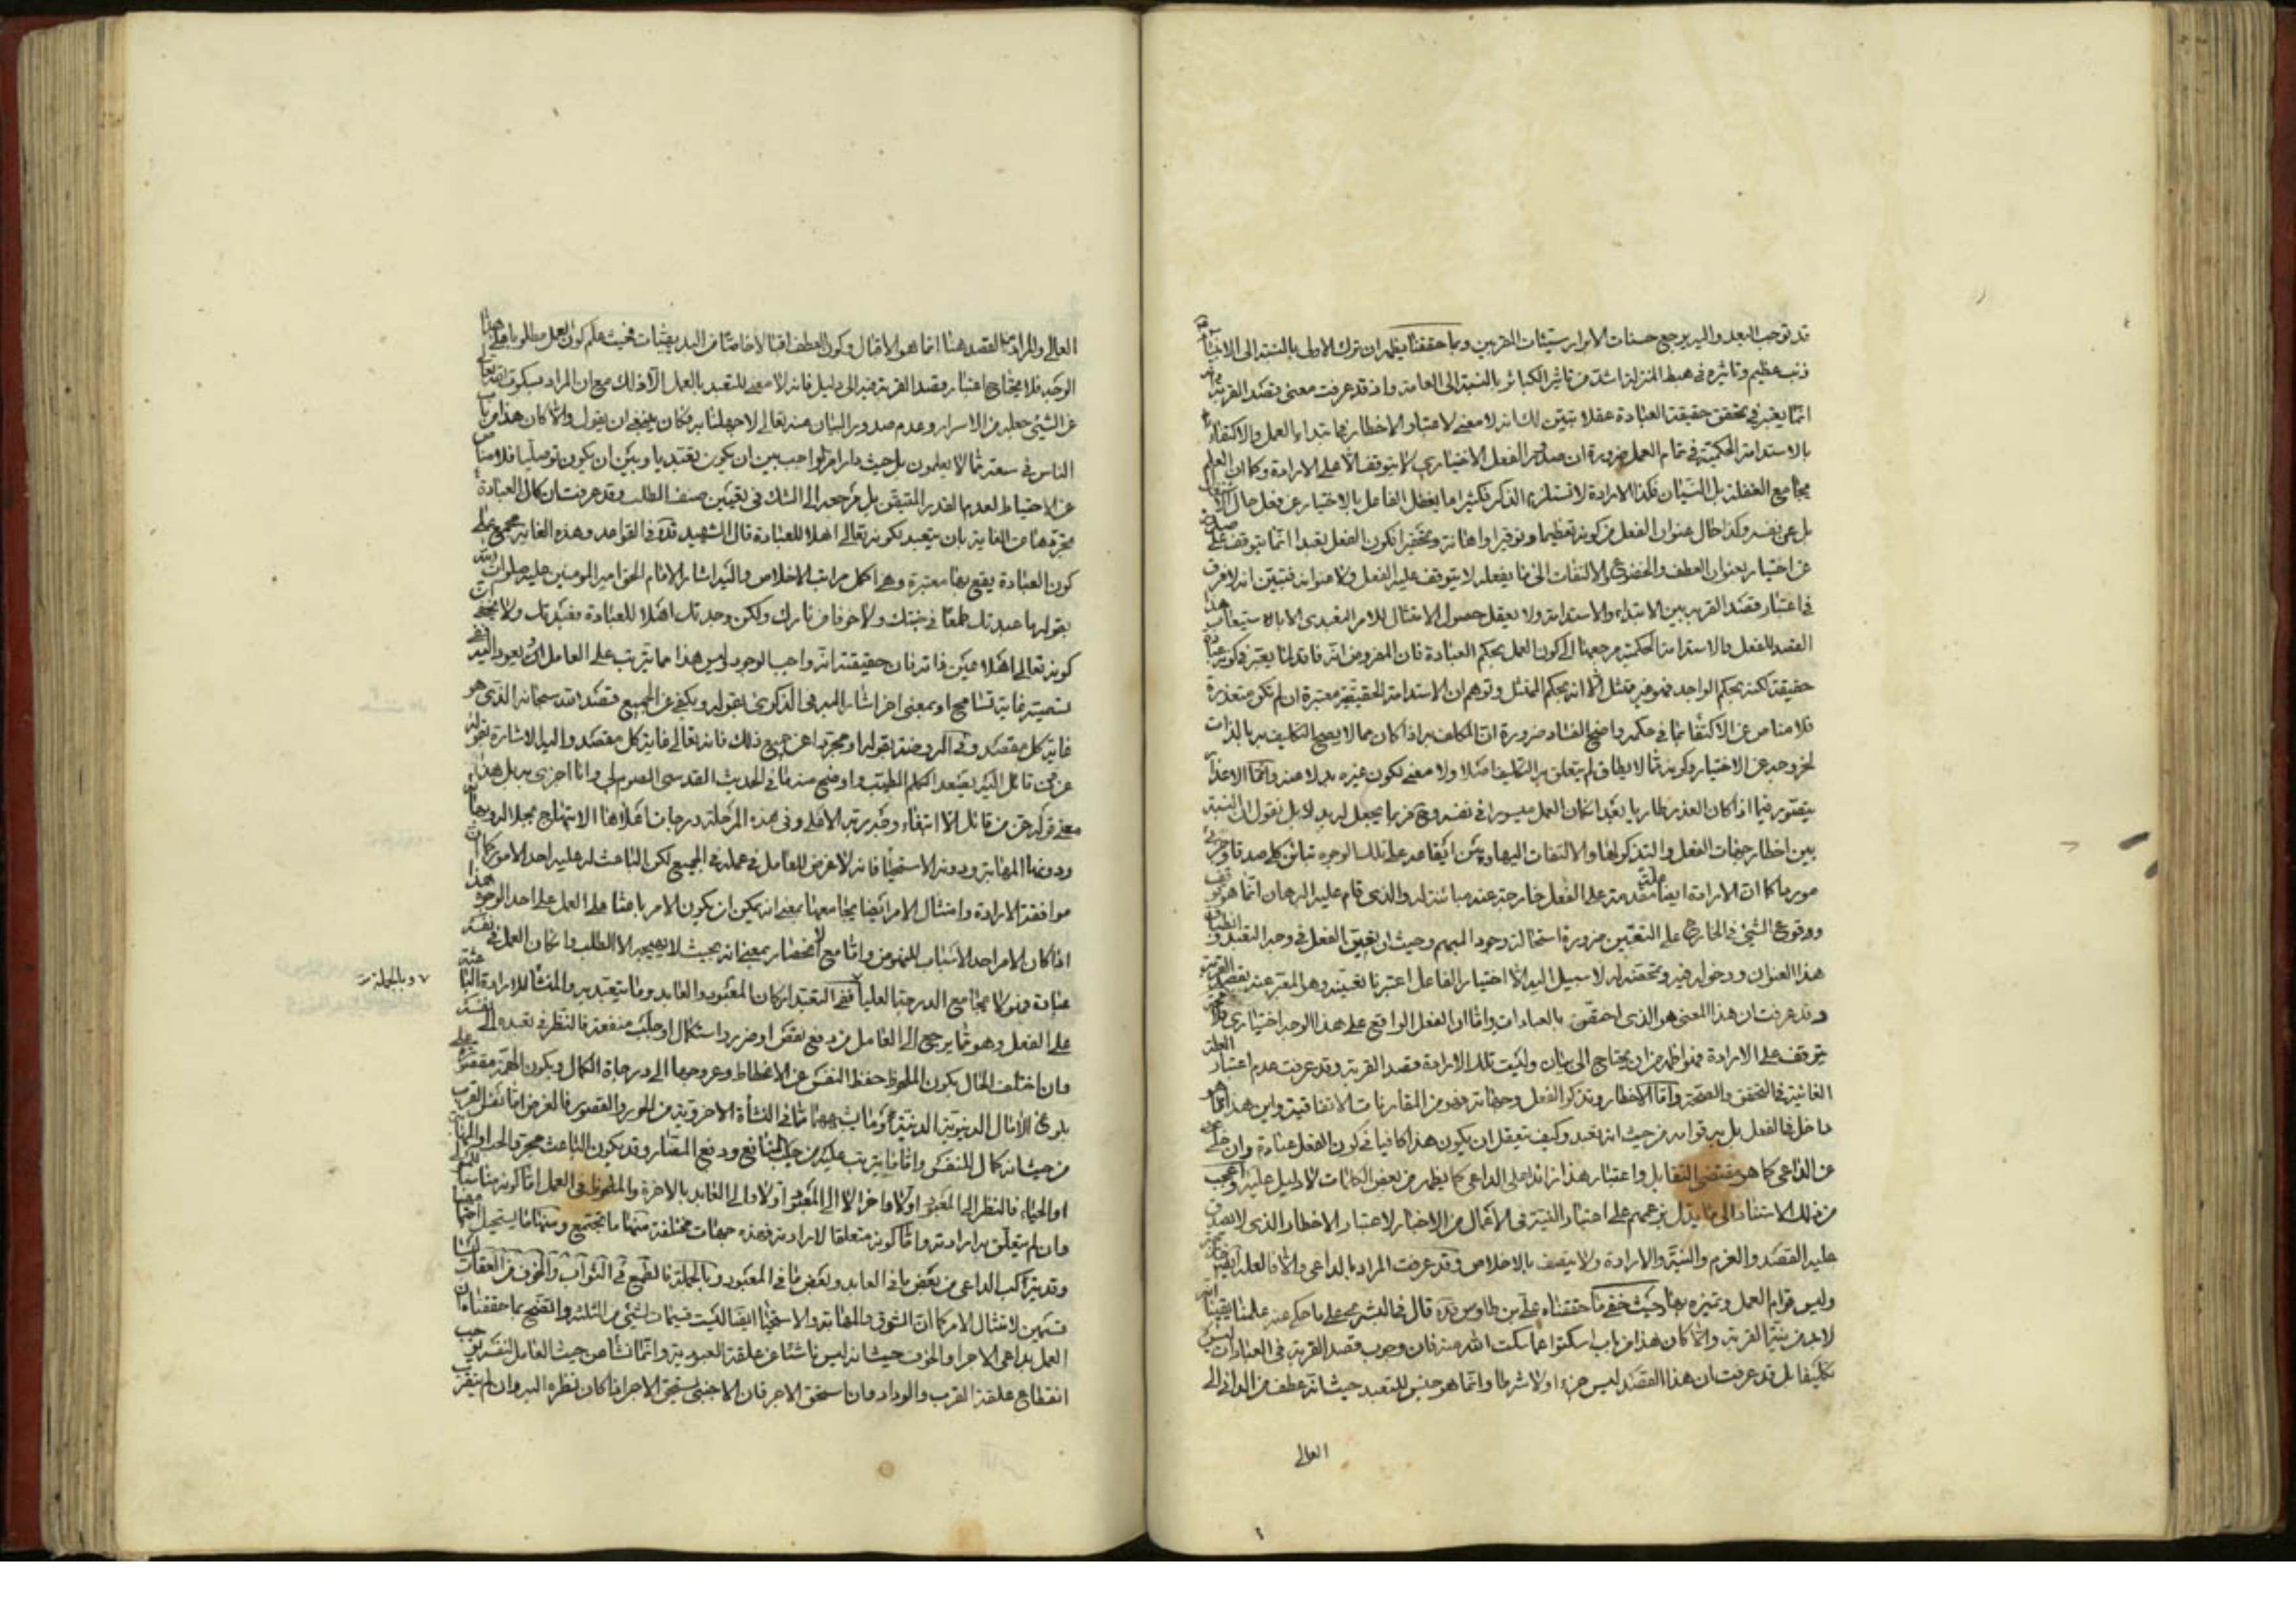 قد توجب البعد واليه يرجع حسنات الابرار سيئات المقربين وبما حققنا يظهر ان ترك الاولى بالنسبة الى الانبياء
ذنب عظيم وتاثيره في هبط المنزلة اشد من تاثير الكبائر بالنسبة الى العامة واذ قد عرفت معنى قصد القربة
انما يعتبر في تحقق حقيقة العبادة عقلا تبين لك انه لا معنى لاعتبار الاخطار بها ابتداء العمل والاكتفاء
بالاستدامة الحكمية في تمام العمل ضرورة ان صدور الفعل الاختياري لا يتوقف الا على الارادة وكما ان العلم
يجامع الغفلة بل النسيان فكذا الارادة لا تستلزم الذكر فكثيرا ما يغفل الفاعل بالاختيار عن فعله حال
بل عن نفسه وكذا حال عنوان الفعل من كونه تعظيما وتوقيرا واهانة وتحقيرا فكون الفعل تعبدا انما يتوقف على
عن اختيار بعنوان العطف والخضوع والالتفات الى ما يفعله لا يتوقف عليه الفعل ولا عنوانه فتبين انه لا فرق
في اعتبار قصد القربة بين الابتداء والاستدامة ولا يعقل حصول الامتثال للامر التعبدي الا باستيعاب هذا
القصد للفعل والاستدامة الحكمية مرجعها الى كون العمل بحكم العبادة فان المفروض انه فاقد لما يعتبر في كونه عبادة
حقيقة لكنه بحكم الواجد فهو غير ممتثل الا انه بحكم الممتثل وتوهم ان الاستدامة الحقيقية معتبرة ان لم تكن متعذرة
فلا مناص عن الاكتفاء بما في حكمه واضح الفساد ضرورة ان المكلف به اذا كان مما لا يصح التكليف به بالذات
لخروجه عن الاختيار وكونه مما لا يطاق لم يتعلق به التكليف اصلا ولا معنى لكون غيره بدلا منه وانما الاعذار
يتصور فيما اذا كان العذر طاريا بعد امكان العمل ميسورا في نفسه وح فربما يجعل له بدل بل نقول ان النسبة
بين اخطار جهات الفعل والتذكر لها والالتفات اليها وبين ايقاعه على تلك الوجوه تباين كلي صدقا وجزئي
موردا كما ان الارادة ايضا متقدمة على الفعل خارجة عنه مباينة له والذي قام عليه البرهان انما هو توقف
ووقوع الشئ في الخارج على التعين ضرورة استحالة وجود المبهم وحيث ان تعين الفعل في وجه التعبد وانطباق
هذا العنوان ودخوله فيه وتحققه له لا سبيل اليه الا اختيار الفاعل اعتبرنا تعيينه وهو المعبر عنه بقصد القربة
وقد عرفت ان هذا المعنى هو الذي احقق بالعبادات واما ان الفعل الواقع على هذا الوجه اختياري
يتوقف على الارادة فهو اظهر من ان يحتاج الى بيان وليست تلك الارادة قصد القربة وقد عرفت عدم اعتبار العلة
الغائية في التحقق والصحة واما الاخطار وتذكر الفعل وجهاته فهو من المقارنات الاتفاقية واين هذا مما هو
داخل في الفعل بل به قوامه من حيث انه تعبد وكيف يتعقل ان يكون هذا كافيا في كون الفعل عبادة وان خلى
عن الداعي كما هو مقتضى التقابل واعتبار هذا زائدا على الداعي كما يظهر من بعض الكلمات لا دليل عليه واعجب
من ذلك الاستناد الى ما يدل بزعمهم على اعتبار النية في الاعمال من الاخبار لاعتبار الاخطار الذي لا يصدق
عليه القصد والعزم والنية والارادة ولا يتصف بالاخلاص وقد عرفت المراد بالداعي والا فالعلة الغائية
وليس قوام العمل وتميزه بها وحيث خفي ما حققناه على بن طاوس قده قال في البشرى على ما حكى عنه علمنا يقينا انه
لا بد من نية القربة والا كان هذا من باب اسكتوا عما سكت الله عنه فان وجوب قصد القربة في العبادات ليس
تكليفا بل قد عرفت ان هذا القصد ليس جزءا ولا شرطا وانما هو جنس للتعبد حيث انه عطف من الداني الى
العالي
العالي والمراد من القصد هنا انما هو الاقبال وكون العطف اقبالا خاصا من البديهيات فحيث علم كون العمل مطلوبا على هذا
الوجه فلا يحتاج اعتبار قصد القربة فيه الى دليل فانه لا معنى للتعبد بالعمل الا ذلك مع ان المراد بسكوته تعالى
عن الشئ جعله من الاسرار وعدم صدور البيان منه تعالى لا جهلنا به فكان ينبغي ان يقول والا كان هذا من باب
الناس في سعة مما لا يعلمون بل حيث دار امر الواجب بين ان يكون تعبديا وبين ان يكون توصليا فلا مناص
عن الاحتياط لعدم القدر المتيقن بل مرجعه الى الشك في تعيين صنف الطلب وقد عرفت ان كمال العبادة
تجردها عن الغاية بان يتعبد بكونه تعالى اهلا للعبادة قال الشهيد قده في القواعد وهذه الغاية مجمع على
كون العبادة يقع بها معتبرة وهي اكمل مراتب الاخلاص واليه اشار الامام الحق امير المومنين عليه صلوات الله
بقوله ما عبدتك طمعا في جنتك ولا خوفا من نارك ولكن وجدتك اهلا للعبادة فعبدتك ولا يخفى ان
كونه تعالى اهلا عين ذاته فان حقيقته انه واجب الوجود وليس هذا مما يترتب على العامل او يعود اليه ففي
تسميته غاية تسامح او بمعنى اخر اشار اليه في الذكرى بقوله ويكفي عن الجميع قصد الله سبحانه الذي هو
غاية كل مقصد وفي الروضة بقوله او مجردا عن جميع ذلك فانه تعالى غاية كل مقصد واليه الاشارة بقوله
عز من قائل اليه يصعد الكلم الطيب واوضح منه ما في الحديث القدسي الصوم لي وانا اجزي به بل هذا
معنى قوله عز من قائل الا ابتغاء وجه ربه الاعلى وفي هذه المرحلة درجات اعلاها الابتهاج بجلال وجهه
ودونها المهابة ودونه الاستحياء فانه لا غرض للعامل في عمله في الجميع لكن الباعث له عليه احد الامور كما ان
موافقة الارادة وامتثال الامر ايضا يجامعها بمعنى انه يمكن ان يكون الامر باعثا على العمل على احد الوجوه هذا
اذا كان الامر احد الاسباب للنهوض واما مع الانحصار بمعنى انه بحيث لا يهيجه الا الطلب وان كان العمل في نفسه
عبادة فهو لا يجامع الدرجة العليا ففي التعبد اركان المعبود والعابد وما يتعبد به والمنشأ للارادة الباعثة
على الفعل وهو مما يرجع الى العامل من دفع نقص او ضرر واستكمال او جلب منفعة فالنظر في تعبده الى نفسه
وان اختلف الحال بكون الملحوظ حفظ النفس عن الانحطاط وعروجها الى درجات الكمال وبكون الهمة مقصورة على
بلوغ الآمال الدنيوية الدنية او ما يشبهها مما في النشأة الاخروية من الحور والقصور فالغرض اما نفس القرب
من حيث انه كمال للنفس واما ما يترتب عليه من جلب المنافع ودفع المضار وقد يكون الباعث مجرد الحب او المهابة
او الحياء فالنظر الى المعبود اولا واخرا لا الى المعبود اولا والى العابد بالاخرة والملحوظ في العمل اما كونه مناسبا للمعبود
وان لم يتعلق به ارادته واما كونه متعلقا لارادته فهذه جهات مختلفة منها ما يجتمع ومنها ما يستحيل اجتماعها
وقد يتركب الداعي من بعض ما في العابد وبعض ما في المعبود وبالجملة فالطمع في الثواب والخوف من العقاب ليسا
قسيمين لامتثال الامر كما ان الشوق والمهابة والاستحياء ايضا ليست قسيمات لشئ من الثلثة واتضح بما حققناه ان
العمل بداعي الاجر او الخوف حيث انه ليس ناشئا عن علقة العبودية وانما نشأ من حيث العامل لنفسه يوجب
انقطاع علقة القرب والوداد وان استحق الاجر فان الاجنبي يستحق الاجر اذا كان نظره اليه وان لم يتقرب
وبالجملة